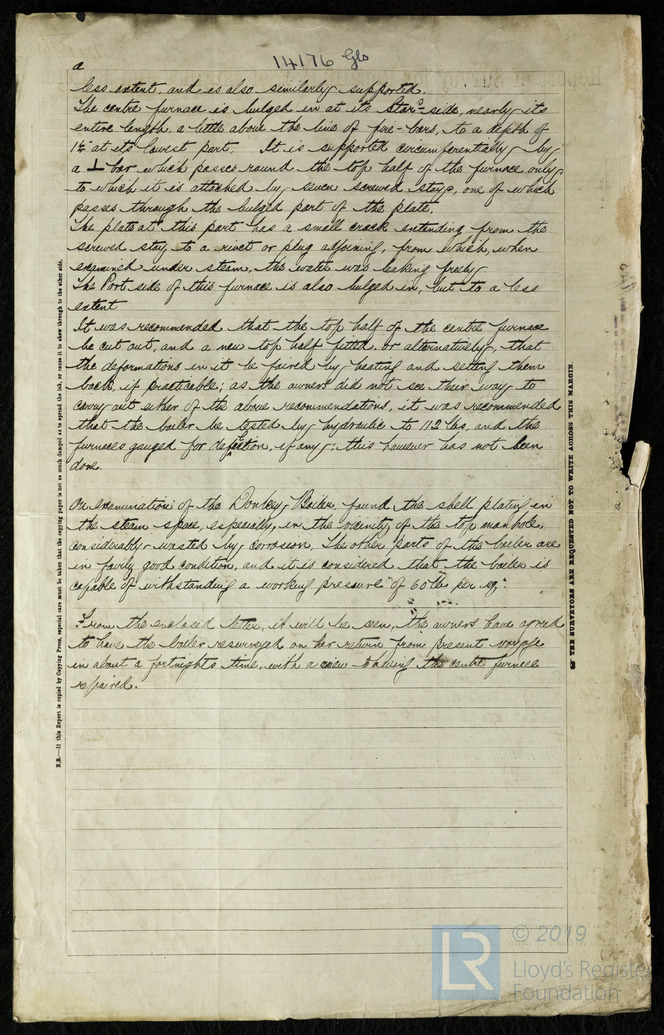 a
14176 Gls
less extent, and is also similarly supported.
The centre furnace is bulged in at its Starᵈ-side, nearly its
entire length, a little above the line of fire-bars, to a depth of
1½" at its lowest part. It is supported circumferentially by
a ⊥ bar which passes round the top half of the furnace only,
to which it is attached by seven screwed stays, one of which
passes through the bulged part of the plate.
The plate at this part has a small crack extending from the
screwed stay to a rivet or plug adjoining, from which, when
examined under steam, the water was leaking freely.
The Port side of this furnace is also bulged in, but to a less
extent
It was recommended that the top half of the centre furnace
be cut out, and a new top half fitted, or alternatively, that
the deformations in it be faired by heating and setting them
back, if practicable; as the owners did not see their way to
carry out either of the above recommendations, it was recommended
that the boiler be tested by hydraulic to 112 lbs, and the
furnaces gauged for deflection, if any: this however has not been
done.
On examination of the Donkey Boiler, found the shell plating in
the steam space, especially, in the vicinity of the top manhole,
considerably wasted by corrosion. The other parts of the boiler are
in fairly good condition, and it is considered that the boiler is
capable of withstanding a working pressure of 60 lbs per sq".
From the enclosed letter, it will be seen, the owners have agreed
to have the boiler resurveyed on her return from present voyage
in about a fortnights time, with a view to having the centre furnace
repaired.
N.B.—If this Report is copied by Copying Press, especial care must be taken that the copying paper is not so much damped as to spread the ink, or cause it to show through to the other side.
THE SURVEYORS ARE REQUESTED NOT TO WRITE ACROSS THIS MARGIN.
© 2019
LR
Lloyd's Register
Foundation